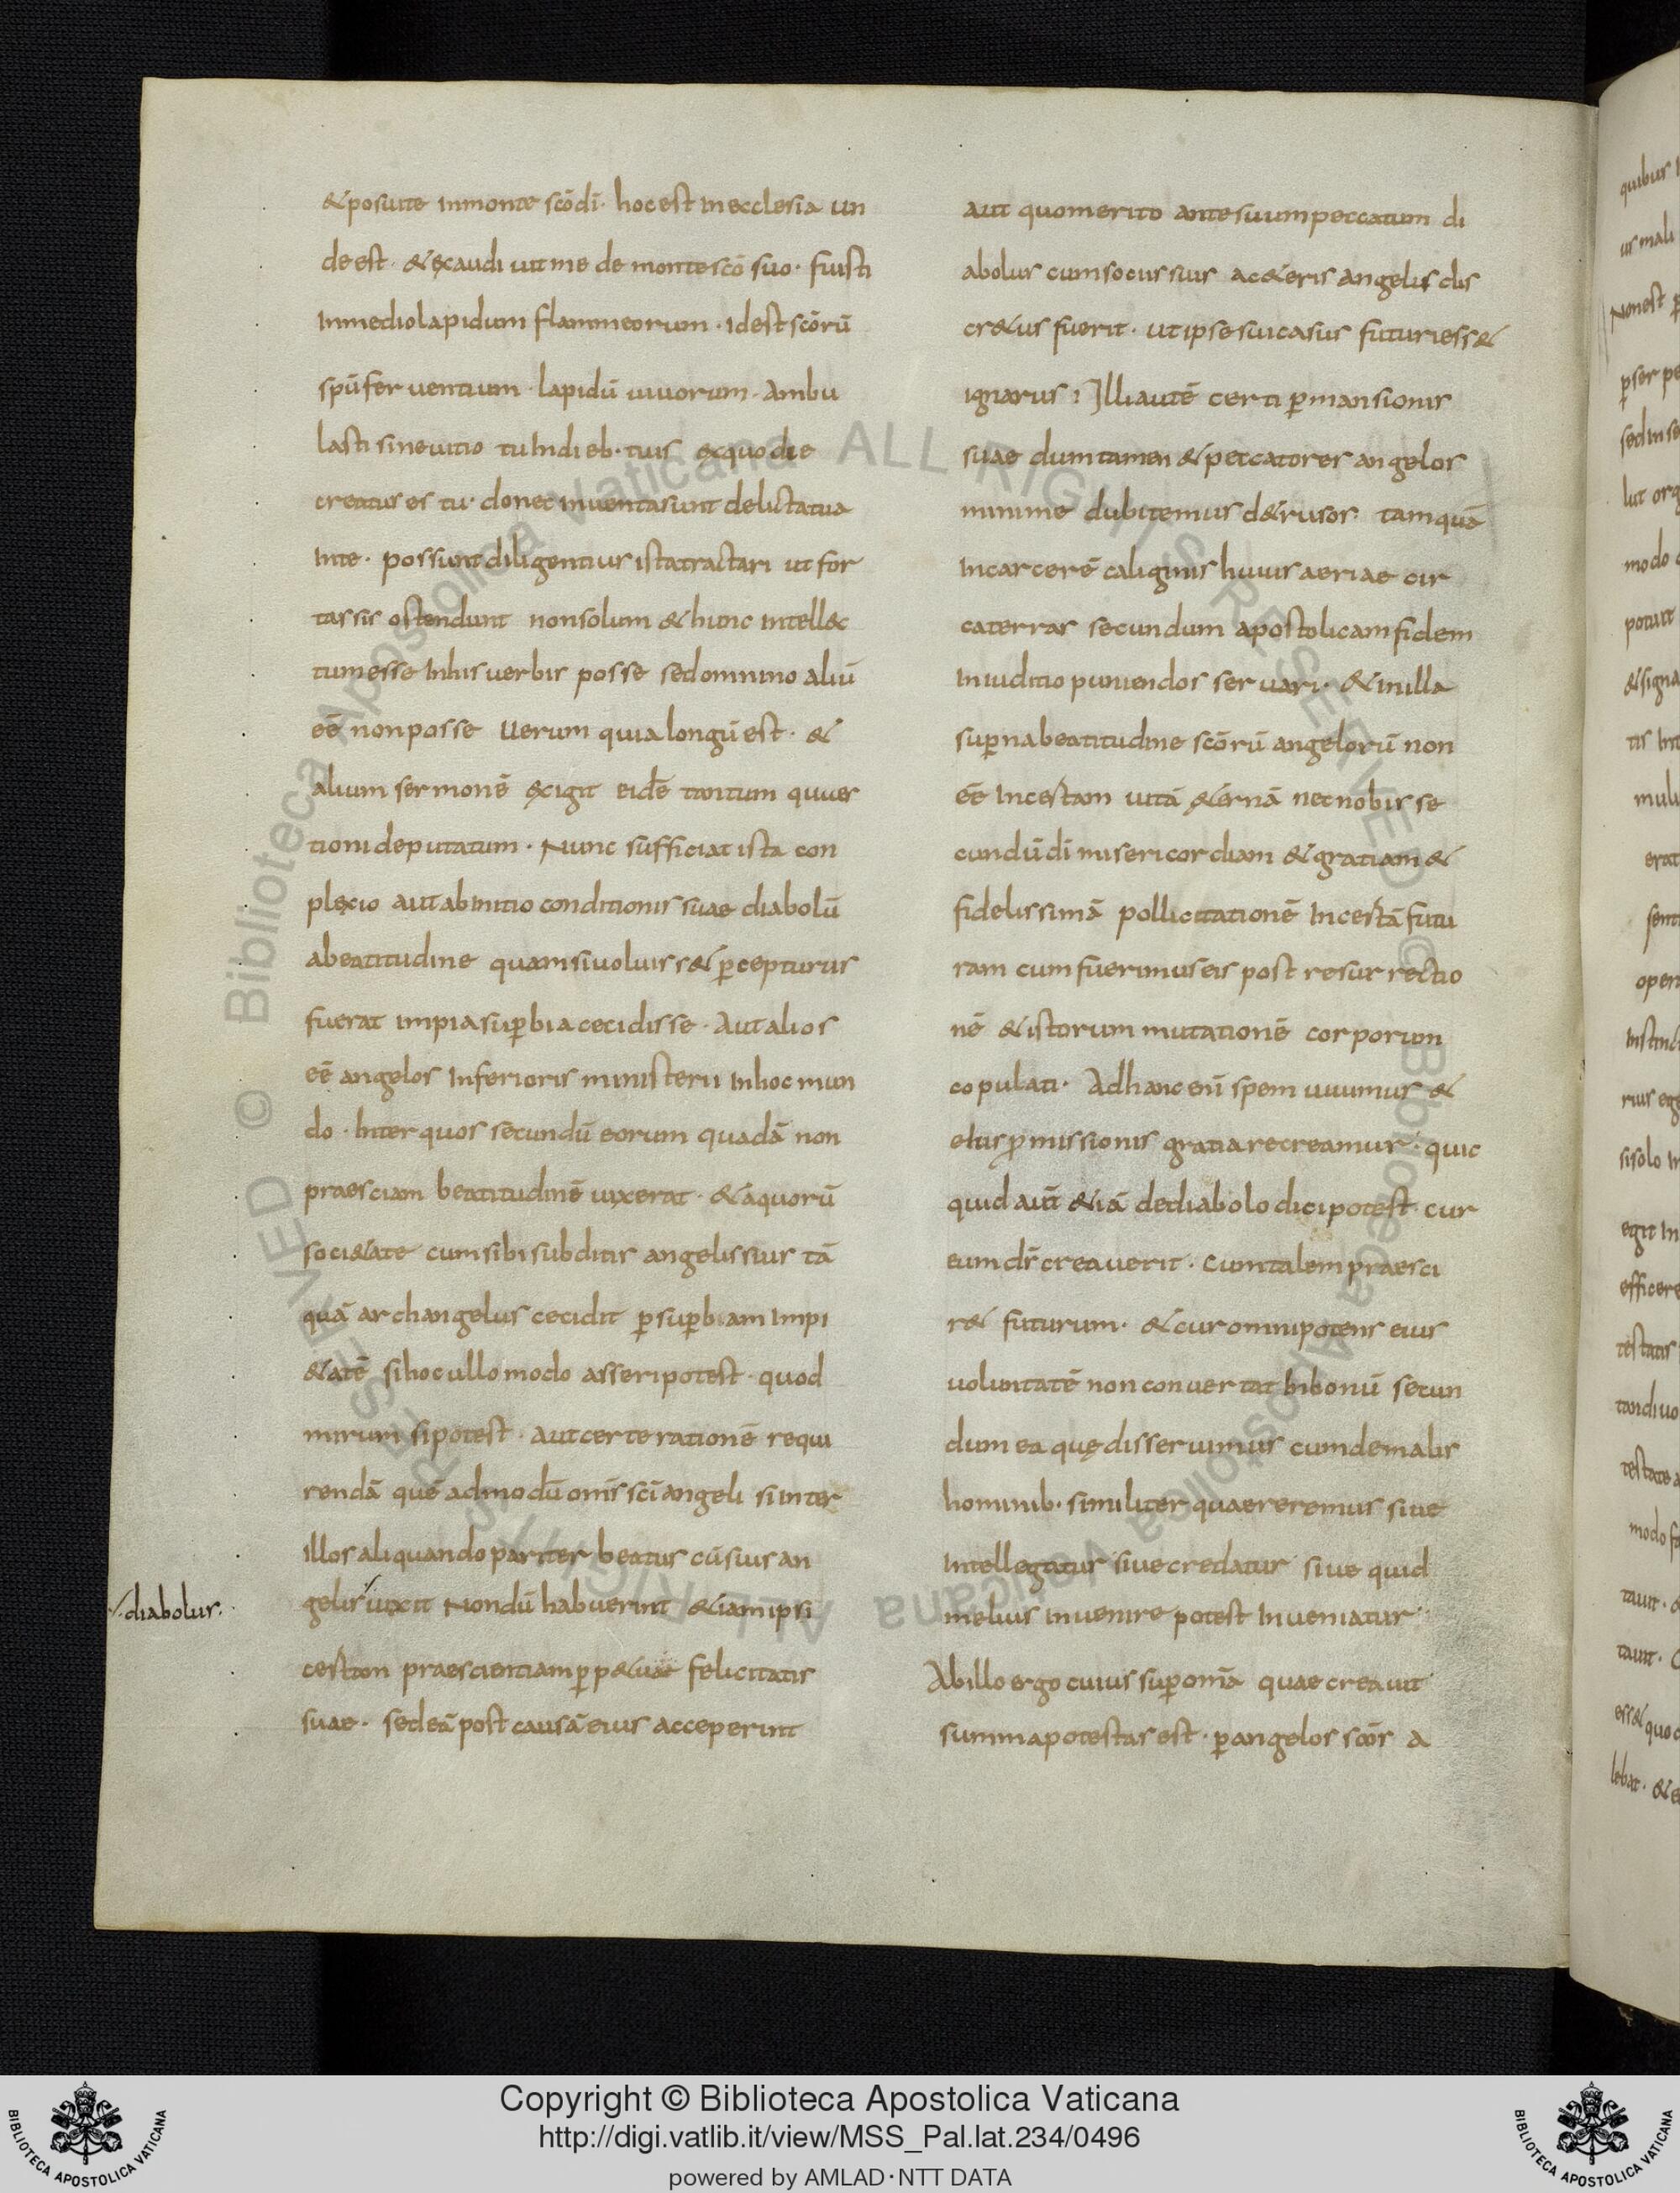 & posui te in monte scō dī · hoc est in ecclesia un
de est · & exaudiuit me de monte scō suo · fuisti
in medio lapidum flammeorum · id est scōrū
spū feruentium · lapidū uiuorum · Ambu
lasti sine uitio tu in dieb· tuis ex quo die
creatus es tu · donec inuenta sunt delicta tua
in te · possunt diligentius ista tractari ut for
tassis ostendunt non solum & hunc intellec
tum esse in his uerbis posse sed omnino aliū
eē non posse Uerum quia longū est · &
alium sermonē exigit eidē tantum quaes
tioni deputatum · Nunc sufficiat ista con
plexio aut ab initio conditionis suae diabolū
a beatitudine quam si uoluiss& pcepturus
fuerat impia supbia cecidisse · Aut alios
eē angelos inferioris ministerii in hoc mun
do · Inter quos secundū eorum quadā non
praesciam beatitudinē uixerat · & a quorū
soci&ate cum sibi subditis angelis suis tā
quā archangelus cecidit p supbiam impi
&atē si hoc ullo modo asseri potest · quod
mirum si potest · Aut certe rationē requi
rendā quē admodū omīs scī angeli si inter
illos aliquando pariter beatus cū suis an
·diabolus· gelis uixit Nondū habuerint & iam ipsi
certam praescientiam pp&uae felicitatis
suae · sed eā post causā eius acceperint
aut quo merito ante suum peccatum di
abolus cum sociis suis ac&eris angelis dis
cr&us fuerit · ut ipse sui casus futuri ess&
ignarus ; Illi autē certi pmansionis
suae dum tamen & peccatores angelos
minime dubitemus d&rusos · tamquā
in carcerē caliginis huius aeriae cir
ca terras secundum apostolicam fidem
in iuditio puniendos seruari · & in illa
supna beatitudine scōrū angelorū non
eē incertam uitā &ernā nec nobis se
cundū dī misericordiam & gratiam &
fidelissimā pollicitationē incertā futu
ram cum fuerimus eis post resurrectio
nē & istorum mutationē corporum
copulati · Ad hanc enī spem uiuimus &
eius pmissionis gratia recreamur · quic
quid aūt &iā de diabolo dici potest · cur
eum dś creauerit · cum talem praesci
r& futurum · & cur omnipotens eius
uoluntatē non conuertat in bonū secun
dum ea quę disseruimus cum de malis
hominib· similiter quaereremus siue
intellegatur siue credatur siue quid
melius inuenire potest inueniatur
Ab illo ergo cuius sup omīa quae creauit
summa potestas est · p angelos scōs a
© Biblioteca Apostolica Vaticana ALL RIGHTS RESERVED
© Biblioteca Apostolica Vaticana ALL RIGHTS RESERVED
Copyright © Biblioteca Apostolica Vaticana
http://digi.vatlib.it/view/MSS_Pal.lat.234/0496
powered by AMLAD·NTT DATA
BIBLIOTECA APOSTOLICA VATICANA
BIBLIOTECA APOSTOLICA VATICANA